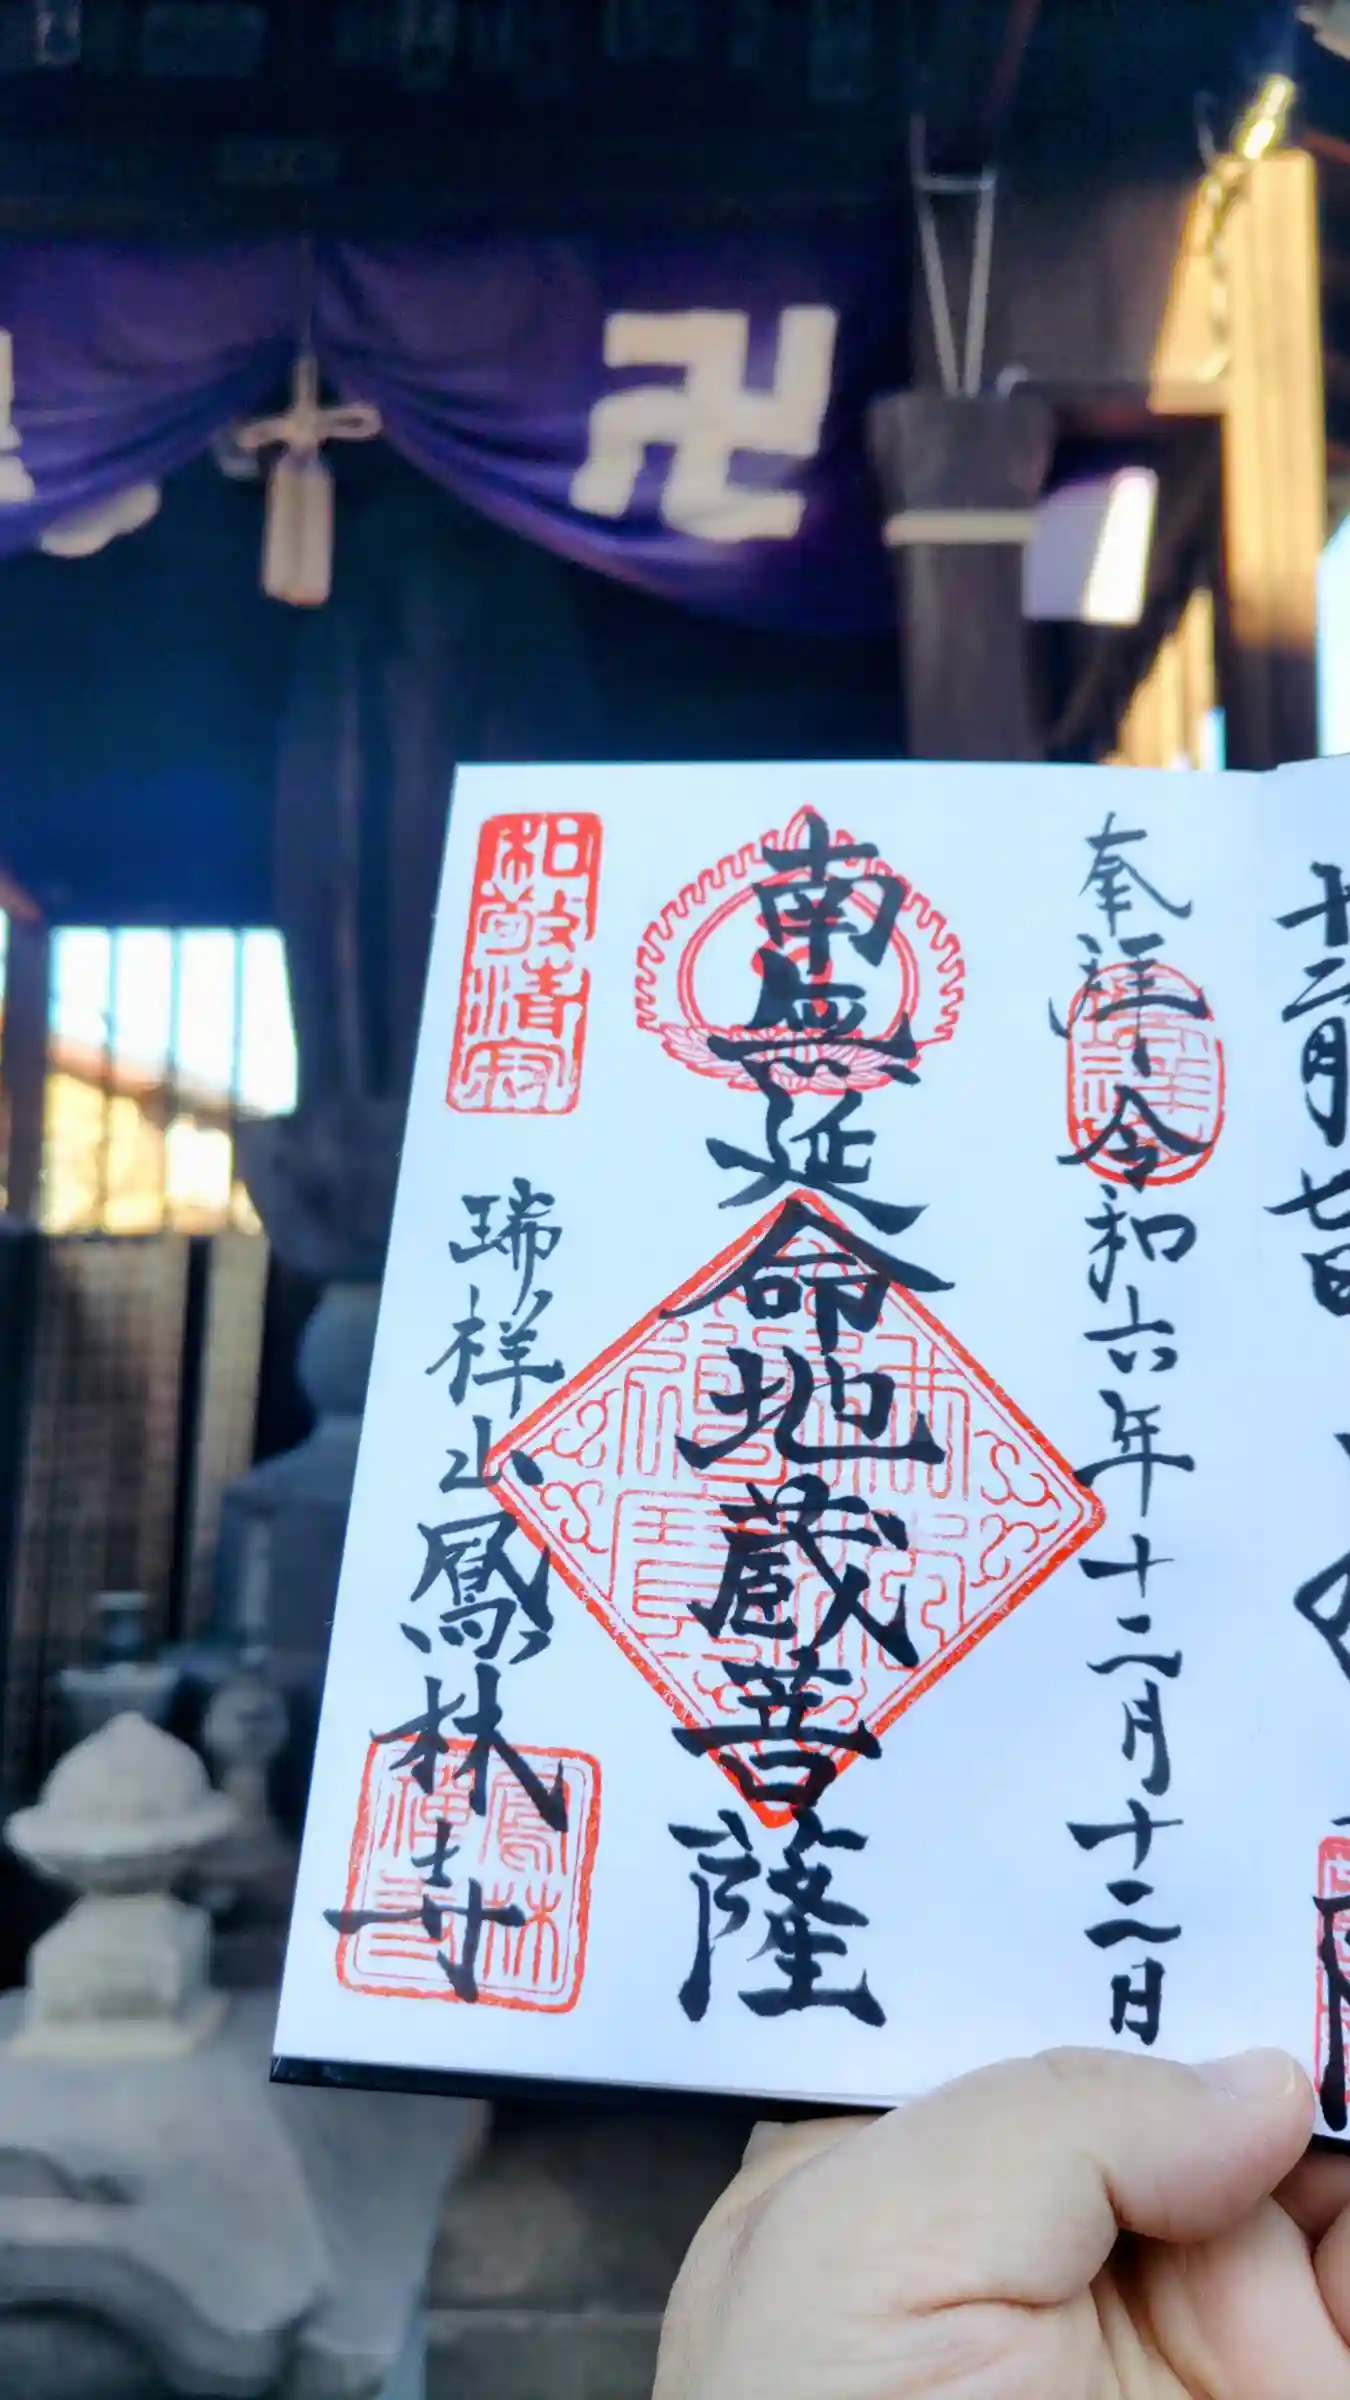 十二月七日
奉拝 令和六年十二月十二日
南無延命地蔵菩薩
瑞祥山鳳林寺
和敬清寂
鳳林禅寺